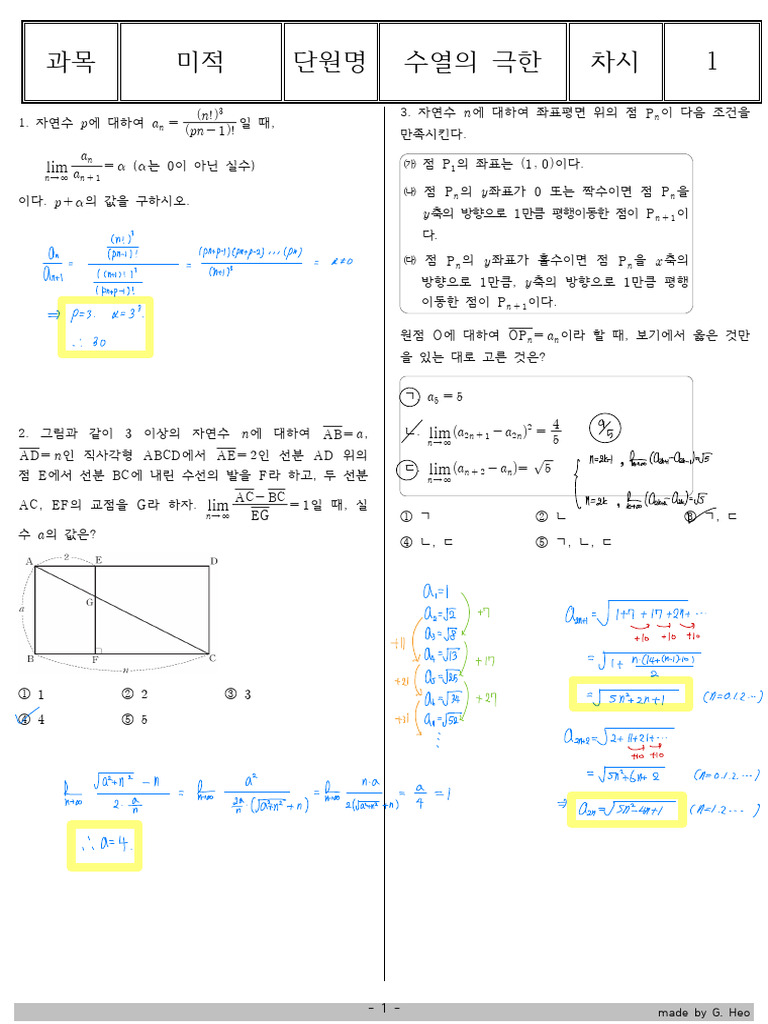 과목 미적 단원명 수열의 극한 차시 1
1. 자연수 p에 대하여 aₙ = (n!)³/(pn−1)! 일 때,
lim n→∞ aₙ/aₙ₊₁ = α (α는 0이 아닌 실수)
이다. p+α의 값을 구하시오.
aₙ/aₙ₊₁ = ((n!)³/(pn-1)!)/(((n+1)!)³/(pn+p-1)!) = (pn+p-1)(pn+p-2)...(pn)/(n+1)³ = α≠0
⇒ p=3. α=3³.
∴ 30
2. 그림과 같이 3 이상의 자연수 n에 대하여 AB=a,
AD=n인 직사각형 ABCD에서 AE=2인 선분 AD 위의
점 E에서 선분 BC에 내린 수선의 발을 F라 하고, 두 선분
AC, EF의 교점을 G라 하자. lim n→∞ (AC−BC)/EG = 1일 때, 실
수 a의 값은?
2
A E D
a
G
B F C
n
① 1 ② 2 ③ 3
④ 4 ⑤ 5
lim n→∞ (√(a²+n²) - n)/(2·a/n) = lim n→∞ a²/((2a/n)(√(a²+n²)+n)) = lim n→∞ n·a/(2(√(a²+n²)+n)) = a/4 = 1
∴ a=4.
3. 자연수 n에 대하여 좌표평면 위의 점 Pₙ이 다음 조건을
만족시킨다.
㈎ 점 P₁의 좌표는 (1, 0)이다.
㈏ 점 Pₙ의 y좌표가 0 또는 짝수이면 점 Pₙ을
y축의 방향으로 1만큼 평행이동한 점이 Pₙ₊₁이
다.
㈐ 점 Pₙ의 y좌표가 홀수이면 점 Pₙ을 x축의
방향으로 1만큼, y축의 방향으로 1만큼 평행
이동한 점이 Pₙ₊₁이다.
원점 O에 대하여 OPₙ=aₙ이라 할 때, 보기에서 옳은 것만
을 있는 대로 고른 것은?
ㄱ. a₅=5
ㄴ. lim n→∞ (a₂ₙ₊₁−a₂ₙ)² = 4/5 9/5
ㄷ. lim n→∞ (aₙ₊₂−aₙ) = √5
① ㄱ ② ㄴ ③ ㄱ, ㄷ
④ ㄴ, ㄷ ⑤ ㄱ, ㄴ, ㄷ
a₁=1
a₂=√2
a₃=√8
a₄=√13
a₅=√25
+7
+17
+27
+11
+21
+31
⋮
a₂ₙ₊₁=√(1+7+17+27+...
+10 +10 +10
=√(1+n(14+(n-1)·10)/2
=√(5n²+2n+1) (n=0.1.2...)
a₂ₙ₊₂=√(2+11+21+...
+10 +10
=√(5n²+6n+2) (n=0.1.2...)
⇒ a₂ₙ=√(5n²-4n+1) (n=1.2...)
- 1 -
made by G. Heo